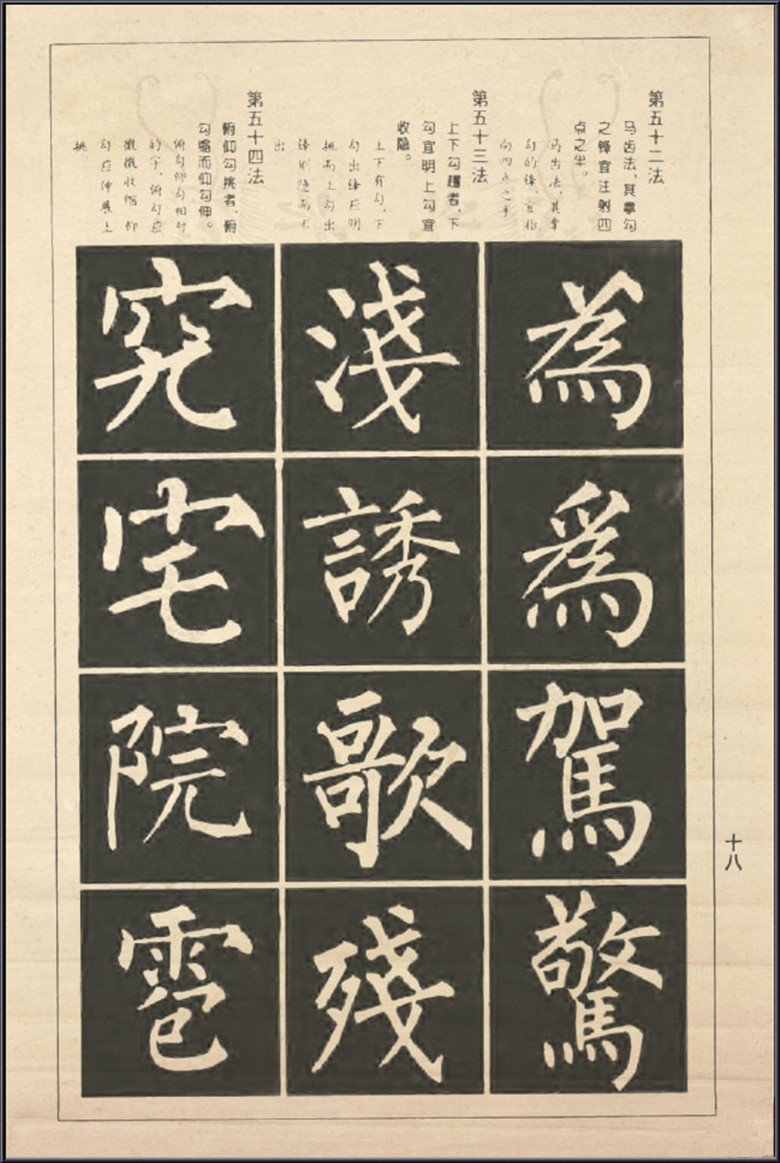 第五十二法
马齿法，其拳勾
之锋宜注射四
点之半。
马齿法，其拿
勾的锋，宜指
向四点之半
第五十三法
上下勾趯者，下
勾宜明上勾宜
收隐。
上下有勾，下
勾出锋应明
挑而上勾出
锋则隐而不
出
第五十四法
俯仰勾挑者，俯
勾缩而仰勾伸。
俯勾仰勾相对
的字，俯勾应
微微收缩，仰
勾应伸展上
挑
為爲駕驚
淺誘歌殘
究宅院雹
十八